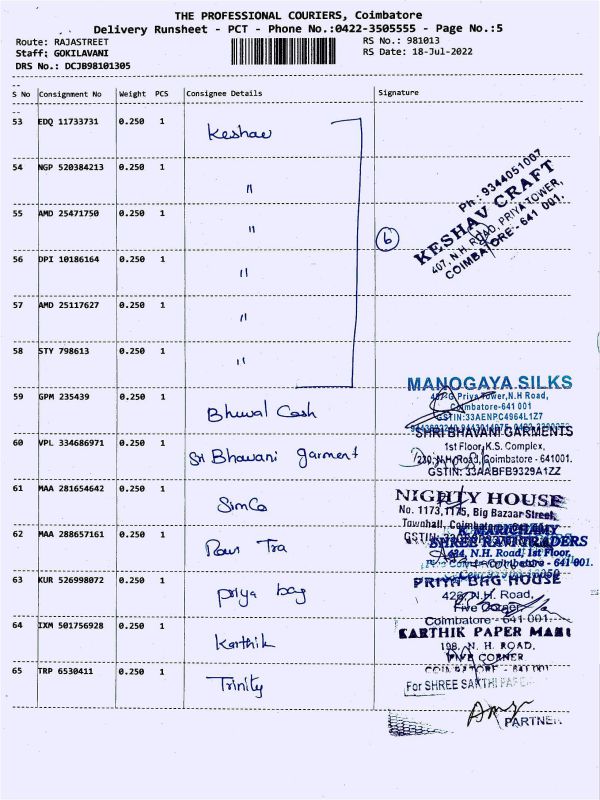 THE PROFESSIONAL COURIERS, Coimbatore
Delivery Runsheet - PCT - Phone No.:0422-3505555 - Page No.:5
Route: RAJASTREET
RS No.: 981013
Staff: GOKILAVANI
RS Date: 18-Jul-2022
DRS No.: DCJB98101305
S No Consignment No Weight PCS Consignee Details Signature
53 EDQ 11733731 0.250 1 Keshav
54 NGP 520384213 0.250 1 "
55 AMD 25471750 0.250 1 "
56 DPI 10186164 0.250 1 "
57 AMD 25117627 0.250 1 "
58 STY 798613 0.250 1 "
6
Ph : 9344051007
KESHAV CRAFT
407, N.H. ROAD, PRIYA TOWER,
COIMBATORE - 641 001.
59 GPM 235439 0.250 1
MANOGAYA SILKS
Priya Tower, N.H Road,
Coimbatore-641 001
GSTIN:33AENPC4964L1Z7
60 VPL 334686971 0.250 1 Sri Bhavani garment
SHRI BHAVANI GARMENTS
1st Floor, K.S. Complex,
230, N.H. Road, Coimbatore - 641001.
GSTIN: 33AABFB9329A1ZZ
61 MAA 281654642 0.250 1 SimCo
NIGHTY HOUSE
No. 1173,1175, Big Bazaar Street,
Townhall, Coimbatore
62 MAA 288657161 0.250 1
K. MARICHAMY
SHREE RAVI TRADERS
N.H. Road, 1st Floor,
Coimbatore - 641 001.
63 KUR 526998072 0.250 1 priya bag
PRIYA BAG HOUSE
N.H. Road,
Five Corner,
Coimbatore - 641 001.
64 IXM 501756928 0.250 1 Karthik
KARTHIK PAPER MART
198, N. H. ROAD,
FIVE CORNER
COIMBATORE - 641 001
65 TRP 6530411 0.250 1 Trinity
For SHREE SAKTHI
PARTNER